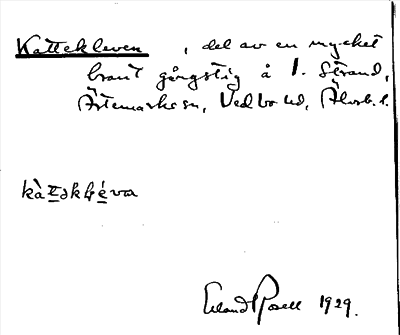 Kattekleven, del av en mycket
brant gångstig å 1. Strand,
Ärtemarks sn, Vedbo hd, Älvsb. l.
Erland Rosell 1929.